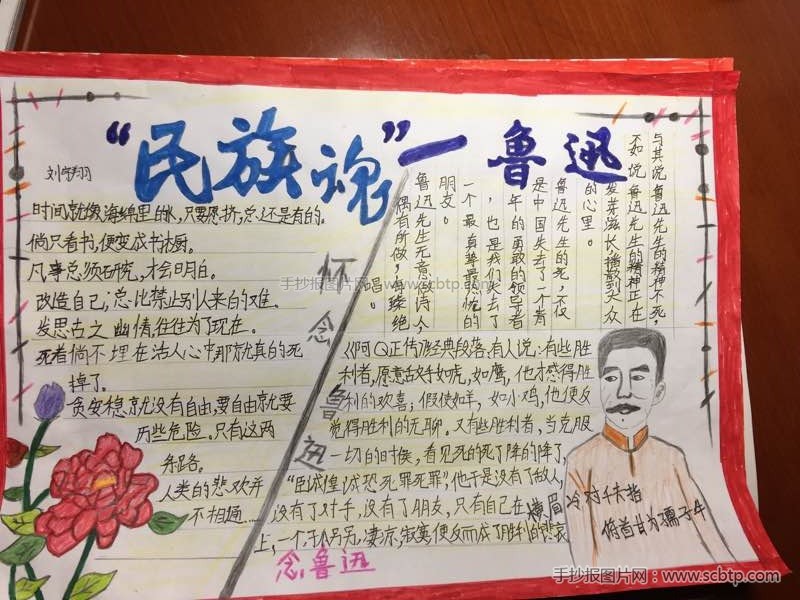 “民族魂”一鲁迅
时间就像海绵里的水,只要愿挤,总还是有的。
倘只看书,便变成书橱。
凡事总须研究,才会明白。
改造自己,总比禁止别人来的难。
发思古之幽情,往往为了现在。
死者倘不埋在活人心中,那就真的死
掉了。
贪安稳就没有自由,要自由就要
历些危险。只有这两
条路。
人类的悲欢并
不相通……
怀念鲁迅
与其说鲁迅先生的精神不死,
不如说鲁迅先生的精神正在
发芽滋长,播散到大众
的心里。
鲁迅先生的死,不仅
是中国失去了一个青
年的勇敢的领导者
,也是我们失去了
一个最真挚最热忱的
朋友。
鲁迅先生无意做诗人
,偶有所做,每臻绝
唱。
《阿Q正传》经典段落:有人说:有些胜
利者,愿意敌手如虎,如鹰,他才感得胜
利的欢喜;假使如羊,如小鸡,他便反
觉得胜利的无聊。又有些胜利者,当克服
一切的时候,看见死的死了降的降了,
“臣诚惶诚恐死罪死罪”,他于是没有了敌人,
没有了对手,没有了朋友,只有自己在
上,一个,孤另另,凄凉,寂寞,便反而成了胜利的悲哀
横眉冷对千夫指
俯首甘为孺子牛
念鲁迅
手抄报图片网 www.scbtp.com
手抄报图片网:www.scbtp.com